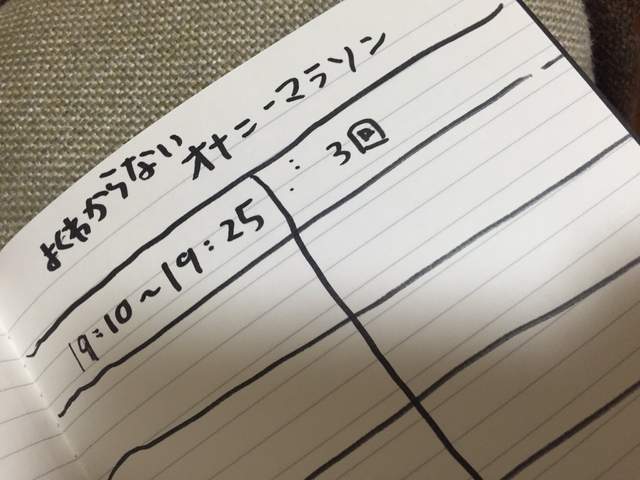 よくわからない オナニーマラソン
19:10～19:25 : 3回